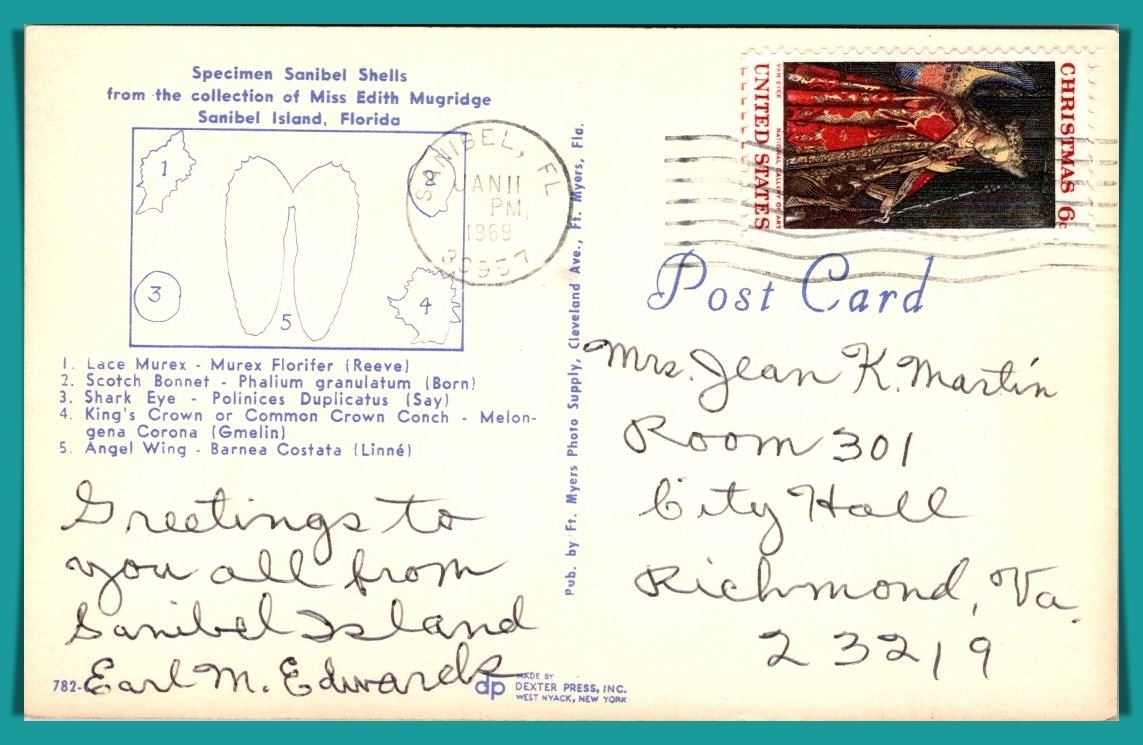 Specimen Sanibel Shells
from the collection of Miss Edith Mugridge
Sanibel Island, Florida
1
2
3
4
5
1. Lace Murex - Murex Florifer (Reeve)
2. Scotch Bonnet - Phalium granulatum (Born)
3. Shark Eye - Polinices Duplicatus (Say)
4. King's Crown or Common Crown Conch - Melon-
gena Corona (Gmelin)
5. Angel Wing - Barnea Costata (Linné)
Greetings to
you all from
Sanibel Island
Earl M. Edwards
782-
dp
MADE BY
DEXTER PRESS, INC.
WEST NYACK, NEW YORK
SANIBEL, FL
JAN 11
PM
1969
33957
Pub. by Ft. Myers Photo Supply, Cleveland Ave., Ft. Myers, Fla.
CHRISTMAS 6c
VAN EYCK NATIONAL GALLERY OF ART
UNITED STATES
Post Card
Mrs. Jean K. Martin
Room 301
City Hall
Richmond, Va.
23219